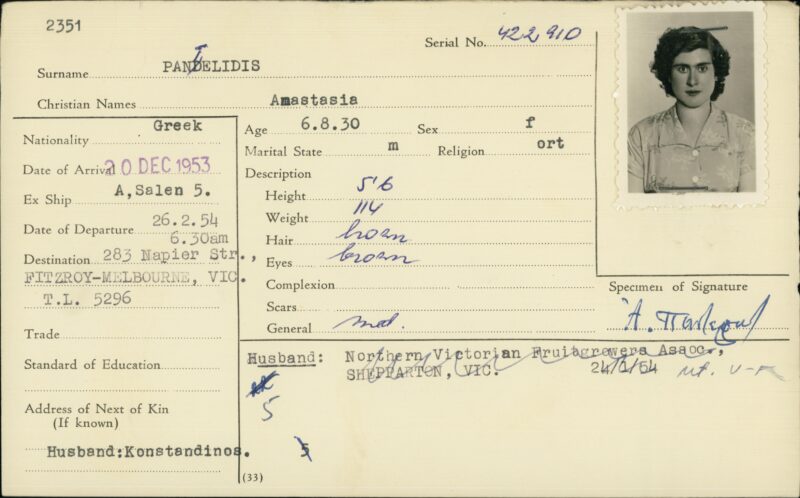 2351
Serial No. 422910
Surname PANTELIDIS
Christian Names Anastasia
Nationality Greek
Date of Arrival 20 DEC 1953
Ex Ship A,Salen 5.
Date of Departure 26.2.54
6.30am
Destination 283 Napier Str.,
FITZROY-MELBOURNE, VIC.
T.L. 5296
Trade
Standard of Education
Address of Next of Kin
(If known)
Husband:Konstandinos.
Age 6.8.30 Sex f
Marital State m Religion ort
Description
Height 5'6
Weight 114
Hair brown
Eyes brown
Complexion
Scars
General med.
Specimen of Signature
Husband: Northern Victorian Fruitgrowers Assoc.,
SHEPPARTON, VIC. 24/1/54
5
5
(33)